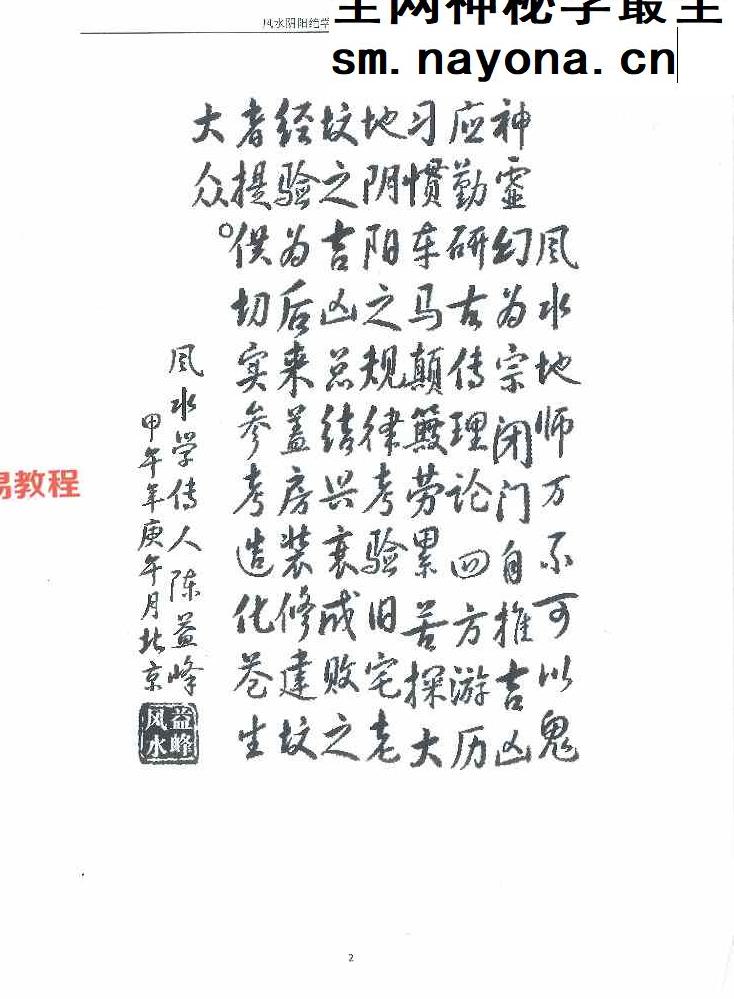 风水阴阳绝学
全网神秘学最全
sm.nayona.cn
风水地师万不可以鬼
神霊幻为宗闭门自推吉凶
应勤研古传理论四方游历
习惯车马颠簸劳累苦探大
地阴阳之规律考验旧宅老
坟之吉凶总结兴衰成败之
经验为后来盖房装修建坟
者提供切实参考造化苍生
大众。
风水学传人陈益峰
甲午年庚午月北京
益峰
风水
易教程
2